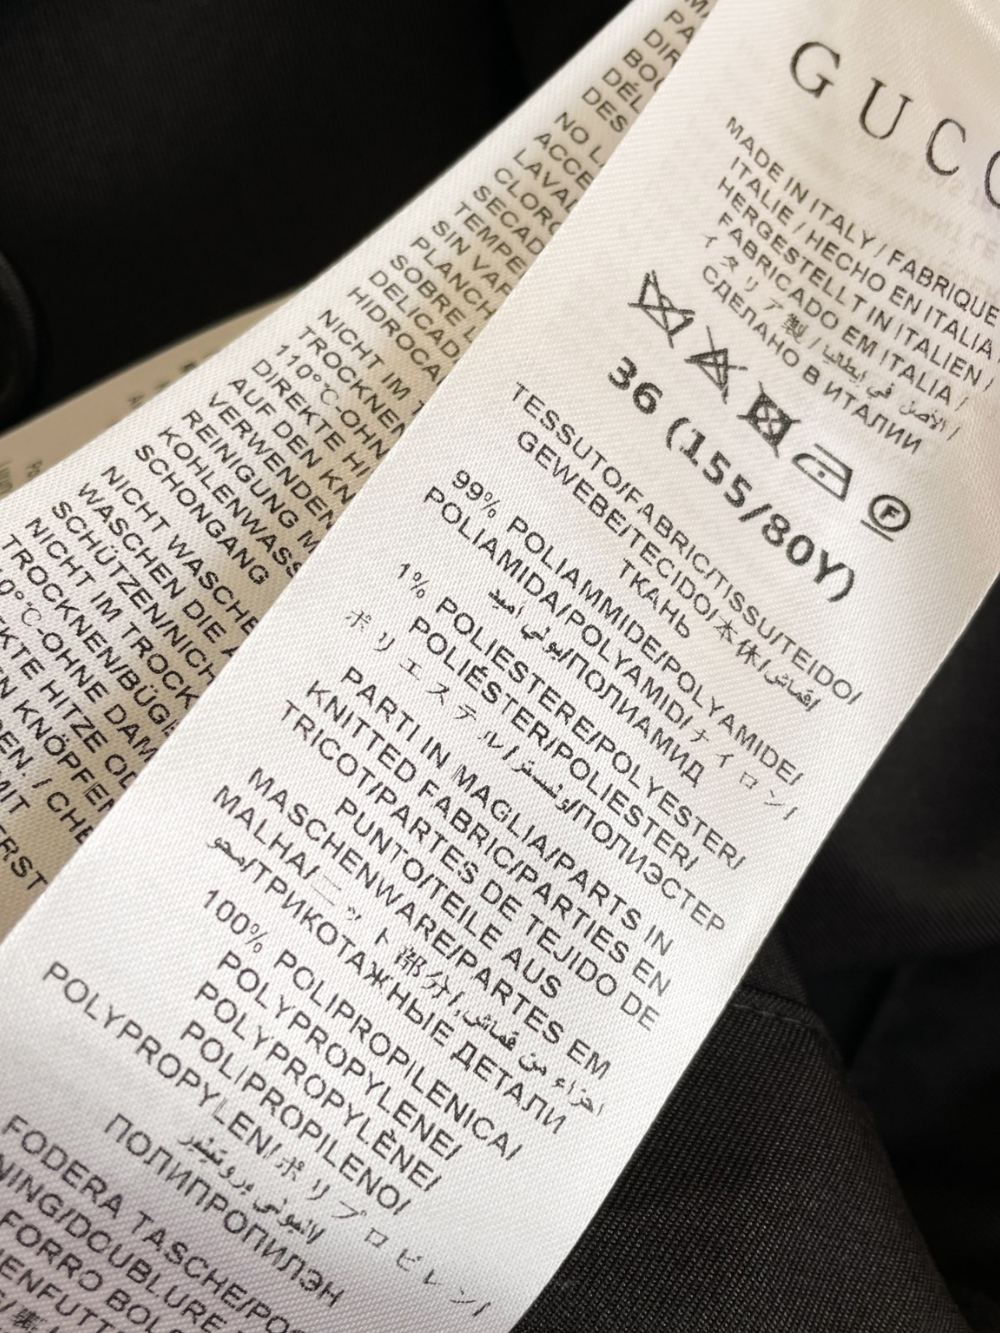 GUCC
MADE IN ITALY / FABRIQUE
ITALIE / HECHO EN ITALIA
HERGESTELLT IN ITALIEN /
FABRICADO EM ITALIA /
イタリア製 /
СДЕЛАНО В ИТАЛИИ
F
36 (155/80Y)
TESSUTO/FABRIC/TISSU/TEJDO/
GEWEBE/TECIDO/本体/قماش/
ТКАНЬ
99% POLIAMMIDE/POLYAMIDE/
POLIAMIDA/POLYAMID/ナイロン/
ПОЛИАМИД
1% POLIESTERE/POLYESTER/
POLIÉSTER/POLIESTER/
ポリエステル/ПОЛИЭСТЕР
PARTI IN MAGLIA/PARTS IN
KNITTED FABRIC/PARTIES EN
TRICOT/PARTES DE TEJIDO DE
PUNTO/TEILE AUS
MASCHENWARE/PARTES EM
MALHA/ニット部分/
ТРИКОТАЖНЫЕ ДЕТАЛИ
100% POLIPROPILENICA/
POLYPROPYLENE/
POLYPROPYLÈNE/
POLIPROPILENO/
POLYPROPYLEN/ポリプロピレン/
ПОЛИПРОПИЛЭН
FODERA TASCHE/PO
NING/DOUBLURE
FORRO BOL
ENFUTT
裏
DES
NO L
ACCE
LAVA
CLORO
SECAD
TEMPE
SIN VAP
PLANCH
SOBRE L
DELICAD
HIDROCA
NICHT IM T
TROCKNEN
110°C-OHN
DIREKTE HI
AUF DEN KN
VERWENDEN
REINIGUNG M
KOHLENWASS
SCHONGANG
NICHT WASCHE
WASCHEN DIE
SCHÜTZEN/NICH
NICHT IM TROCK
TROCKNEN/BÜGE
0°C-OHNE DAM
KTE HITZE OD
N KNÖPFEN
DEN. / CHE
MIT
ERST